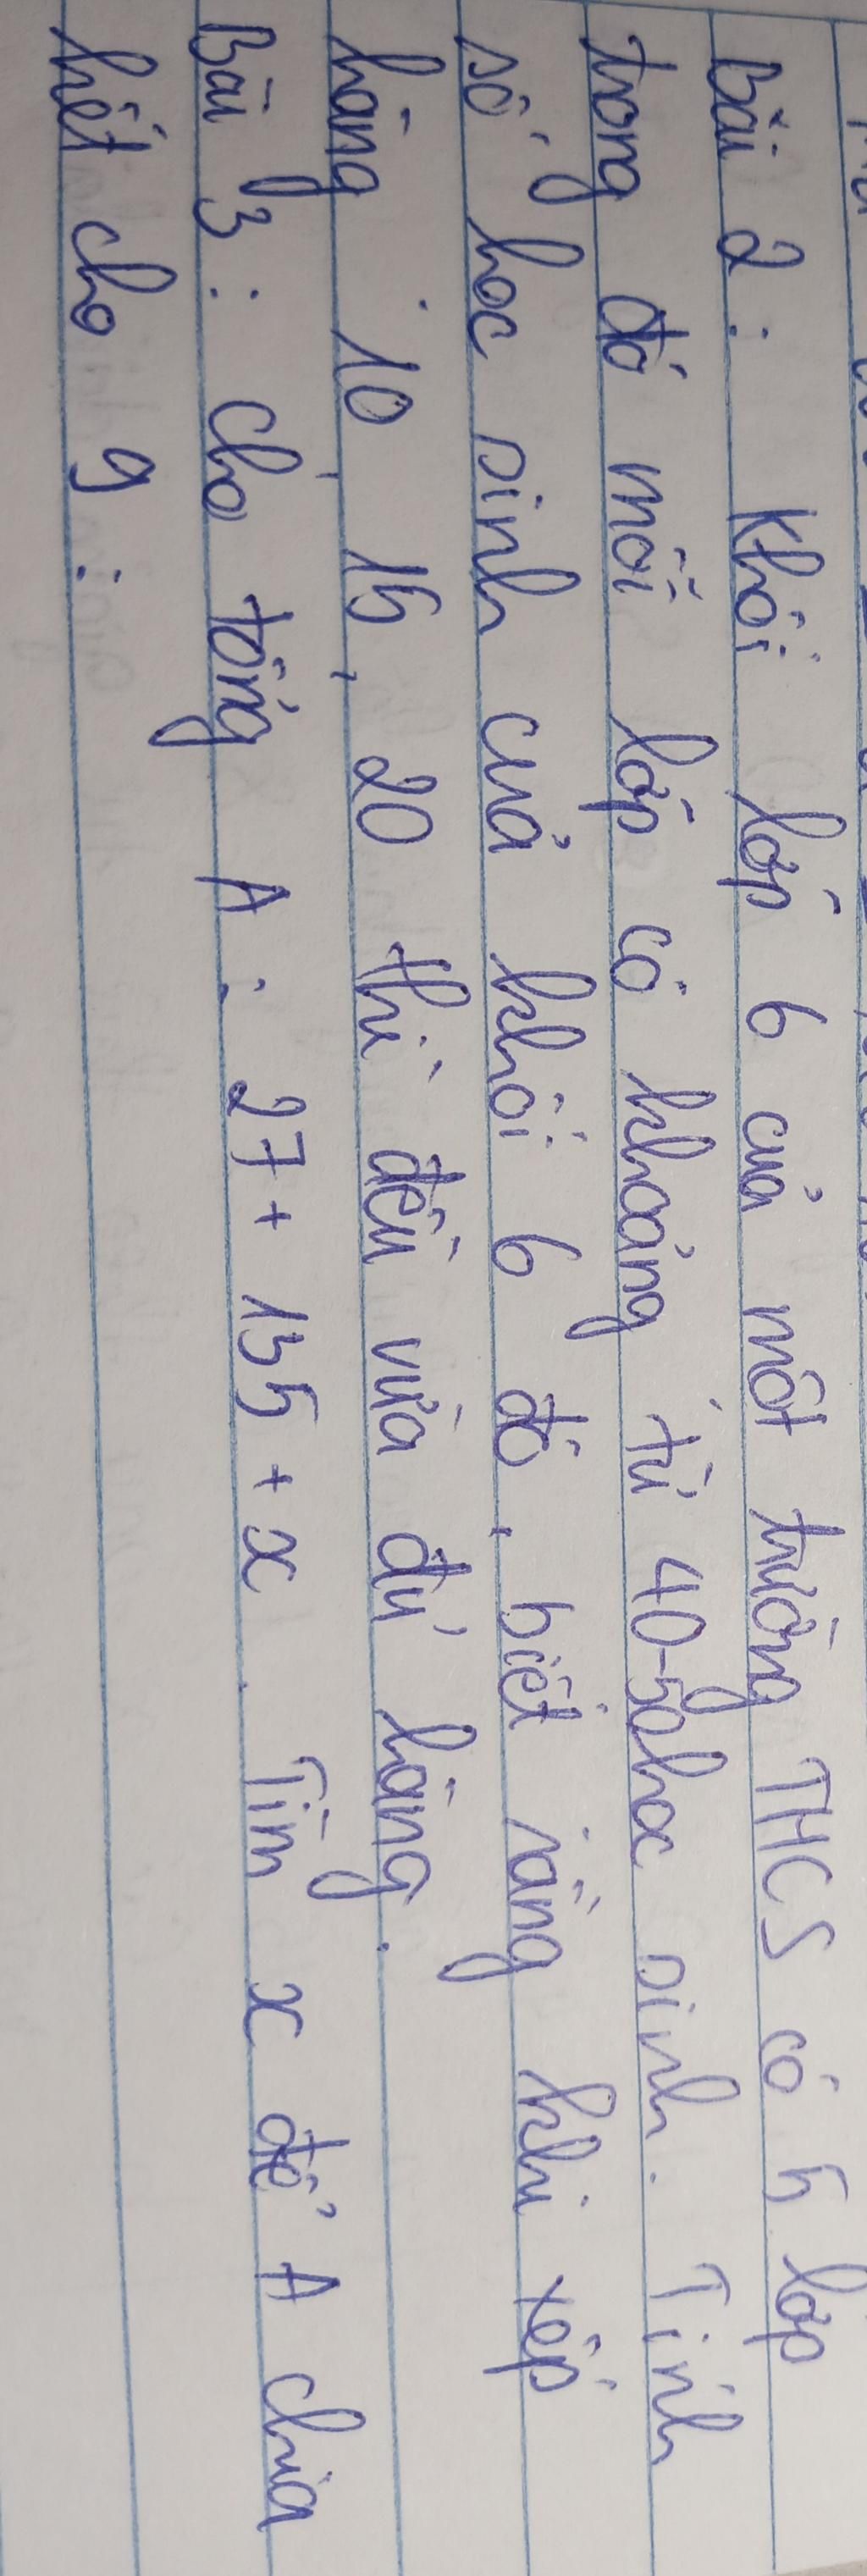 Bài 2 : Khối lớp 6 của một trường THCS có 5 lớp
trong đó mỗi lớp có khoảng từ 40-50 học sinh. Tính
số học sinh của khối 6 đó, biết rằng khi xếp
hàng 10, 15, 20 thì đều vừa đủ hàng.
Bài 3 : cho tổng A = 27 + 155 + x. Tìm x để A chia
hết cho 9 :